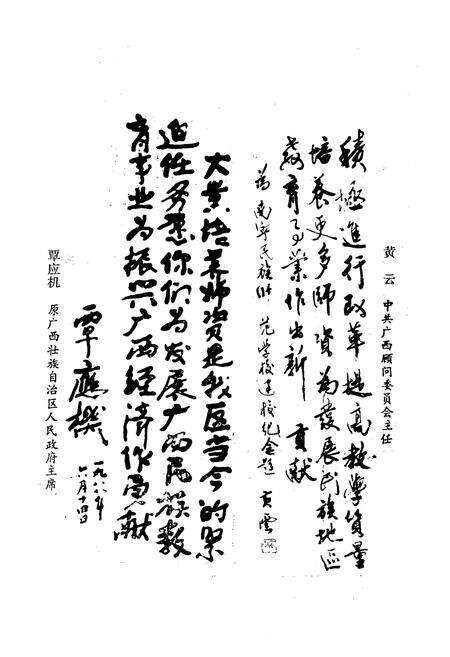 黄云 中共广西顾问委员会主任
積極進行改革提高教学質量
培养更多師資为發展民族地区
教育事業作出新貢献
为南宁民族师范学校建校纪念题 黄雲
大量培养师资是我区当今的紧
迫任务愿你们为发展广西民族教
育事业为振兴广西经济作贡献
覃應機
一九八六年
六月十四日
覃应机 原广西壮族自治区人民政府主席